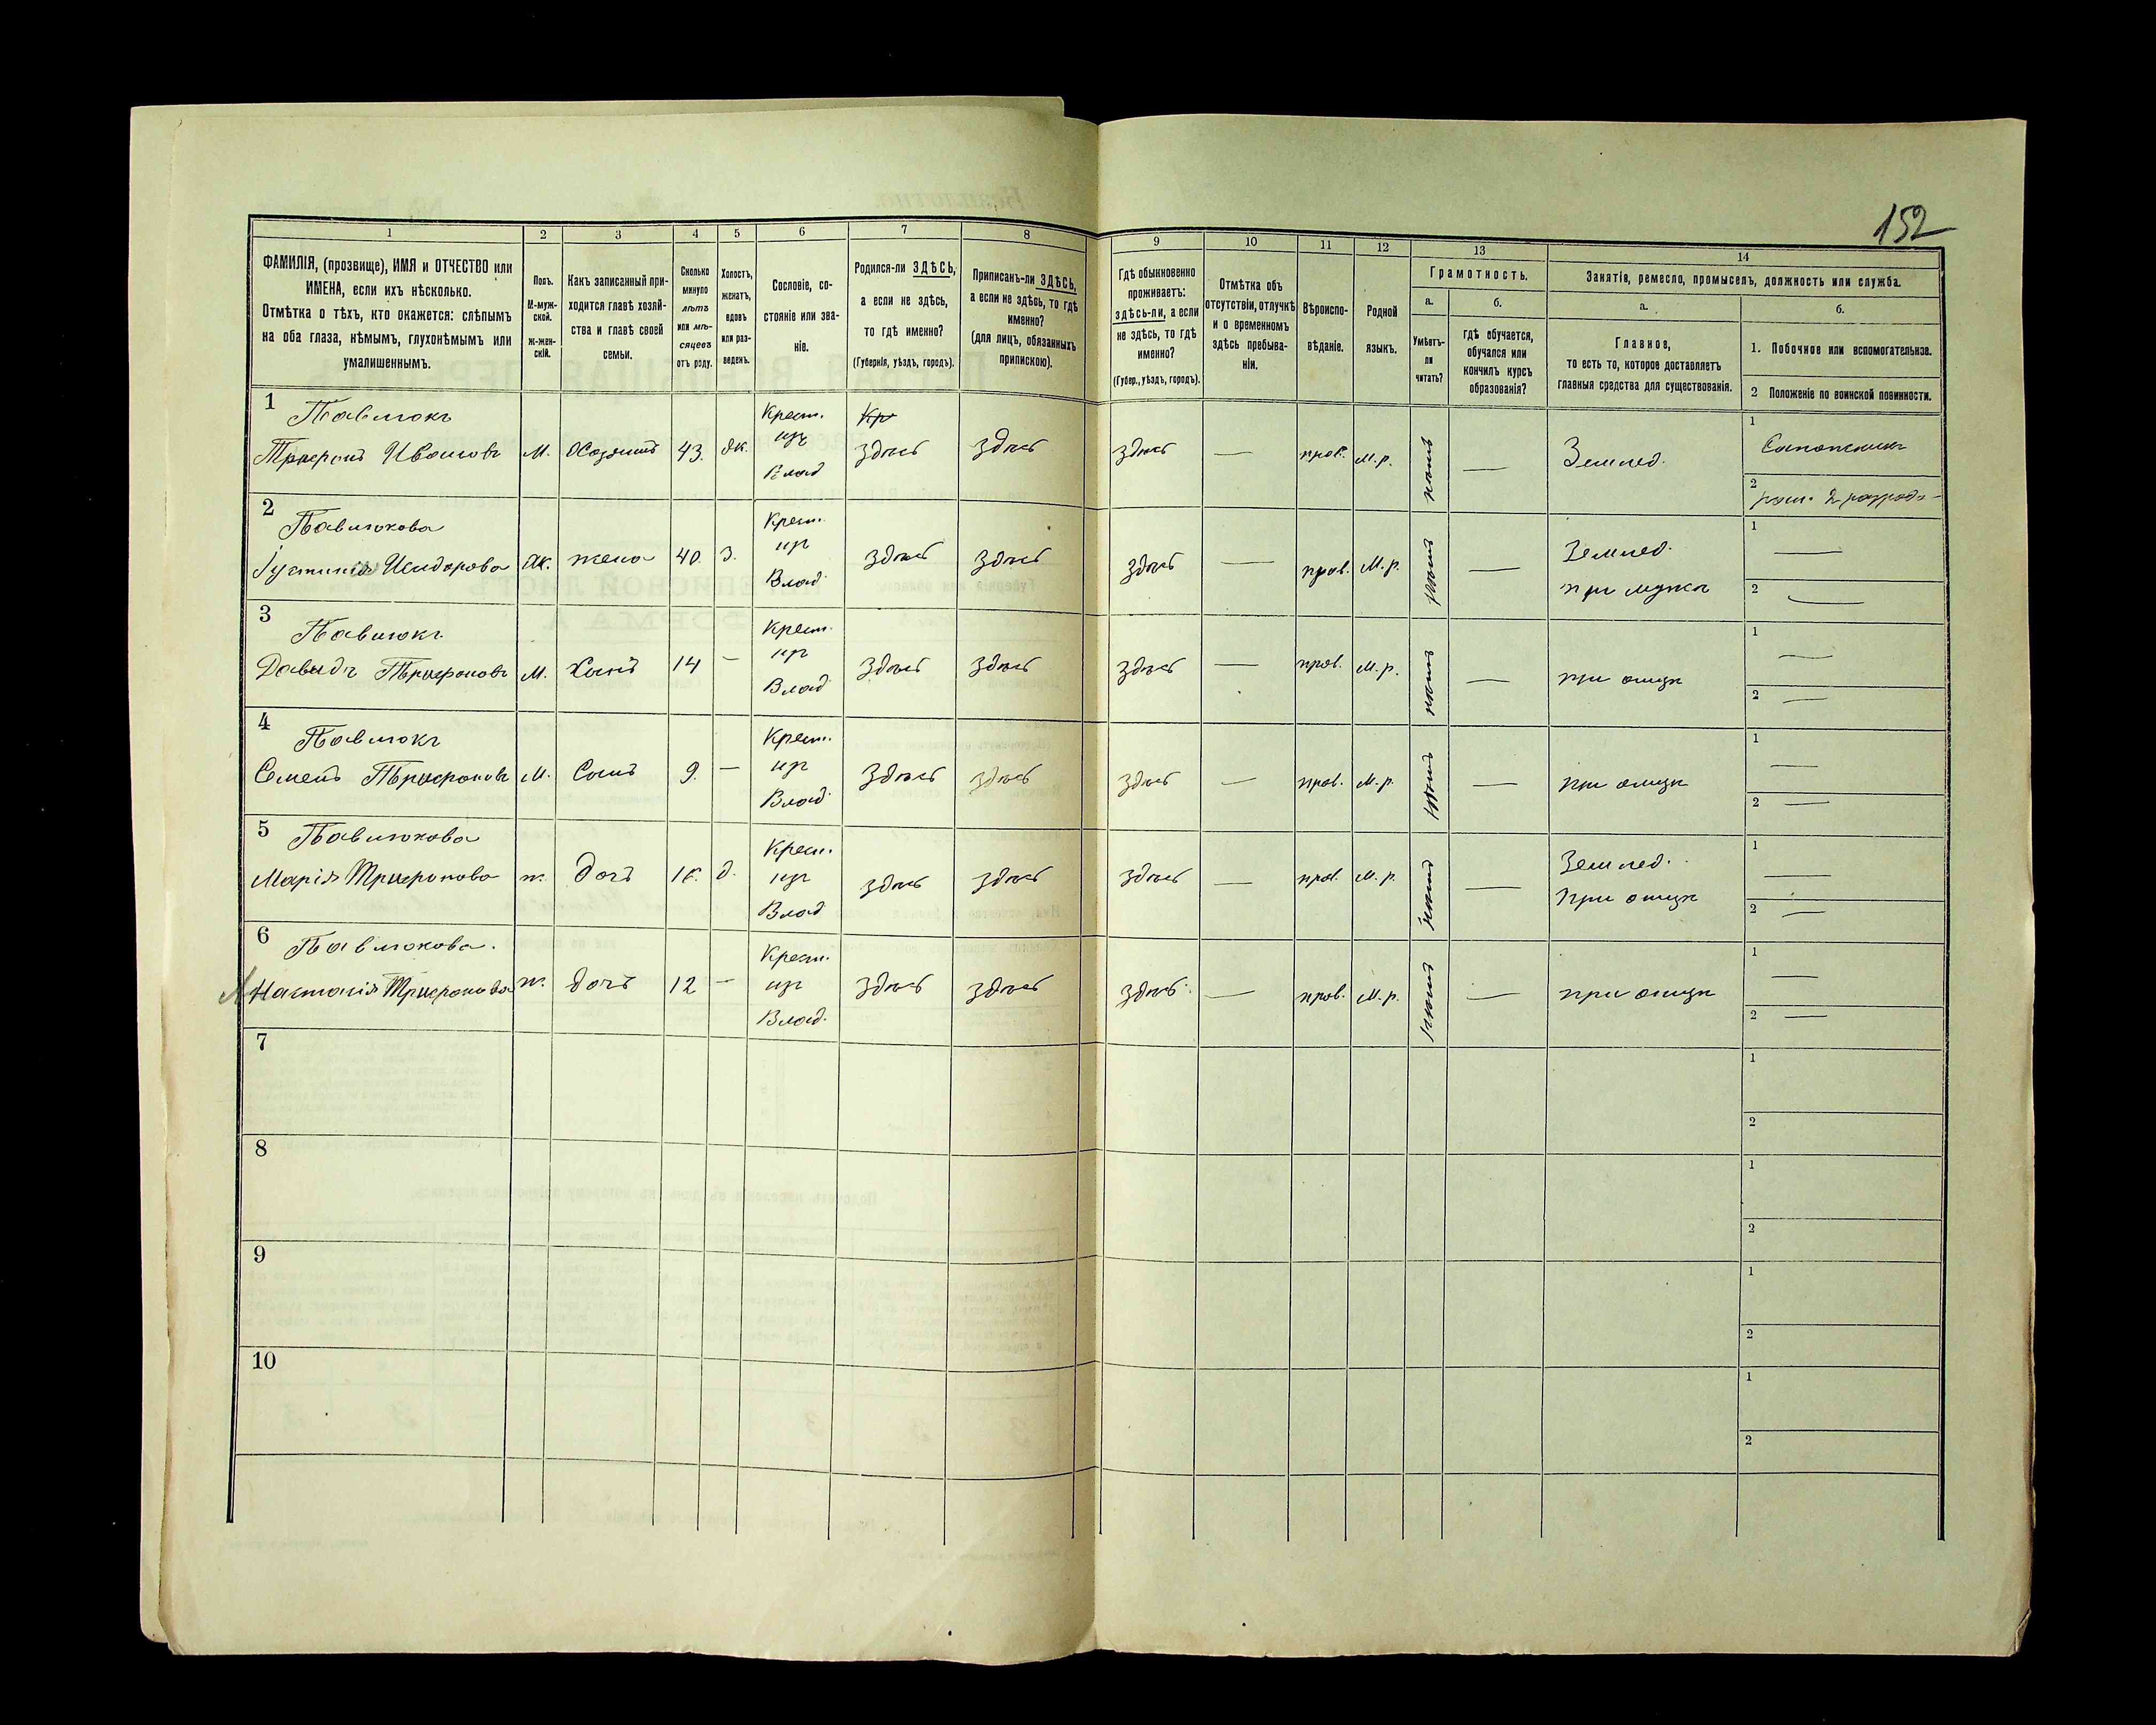 152
1 2 3 4 5 6 7 8 9 10 11 12 13 14
ФАМИЛІЯ, (прозвище), ИМЯ и ОТЧЕСТВО или
ИМЕНА, если ихъ нѣсколько.
Отмѣтка о тѣхъ, кто окажется: слѣпымъ
на оба глаза, нѣмымъ, глухонѣмымъ или
умалишеннымъ.
Полъ.
М-муж-
ской.
Ж-жен-
скій.
Какъ записанный при-
ходится главѣ хозяй-
ства и главѣ своей
семьи.
Сколько
минуло
лѣтъ
или мѣ-
сяцевъ
отъ роду.
Холостъ,
женатъ,
вдовъ
или раз-
веденъ.
Сословіе, со-
стояніе или зва-
ніе.
Родился-ли ЗДѢСЬ,
а если не здѣсь,
то гдѣ именно?
(Губернія, уѣздъ, городъ).
Приписанъ-ли ЗДѢСЬ,
а если не здѣсь, то гдѣ
именно?
(для лицъ, обязанныхъ
припискою).
Гдѣ обыкновенно
проживаетъ:
здѣсь-ли, а если
не здѣсь, то гдѣ
именно?
(Губер., уѣздъ, городъ).
Отмѣтка объ
отсутствіи, отлучкѣ
и о временномъ
здѣсь пребыва-
ніи.
Вѣроиспо-
вѣданіе.
Родной
языкъ.
Грамотность.
а.
Умѣетъ-
ли
читать?
б.
Гдѣ обучается,
обучался или
кончилъ курсъ
образованія?
Занятія, ремесло, промыселъ, должность или служба.
а.
Главное,
то есть то, которое доставляетъ
главныя средства для существованія.
б.
1. Побочное или вспомогательное.
2 Положеніе по воинской повинности.
1 Павлюкъ Крест. Кр 1
Трифонъ Ивановъ М. Хозяинъ 43. Ж. изъ здѣсь здѣсь здѣсь — прав. М.р. нѣтъ — Землед. Сапожникъ
Влад 2 разряда
2 Павлюкова Крест. 1 —
Іустинія Исидорова Ж. жена 40. З. из здѣсь здѣсь здѣсь — прав. М.р. нѣтъ — Землед.
Влад. при мужѣ 2 —
3 Павлюкъ Крест. 1 —
Давидъ Трифоновъ М. Сынъ 14 — из здѣсь здѣсь здѣсь — прав. М.р. нѣтъ — при отцѣ
Влад 2 —
4 Павлюкъ Крест. 1 —
Семенъ Трифоновъ М. Сынъ 9. — из здѣсь здѣсь здѣсь — прав. М.р. нѣтъ — при отцѣ
Влад. 2 —
5 Павлюкова Крест. Землед. 1 —
Марія Трифонова ж. дочь д. из здѣсь здѣсь здѣсь — прав. М.р. нѣтъ — При отцѣ
Влад 2 —
6 Павлюкова. Крест. 1 —
Настасія Трифонова ж. дочь 12 — из здѣсь здѣсь здѣсь — прав. М.р. нѣтъ — при отцѣ
Влад. 2 —
7 1
2
8 1
2
9 1
2
10 1
2